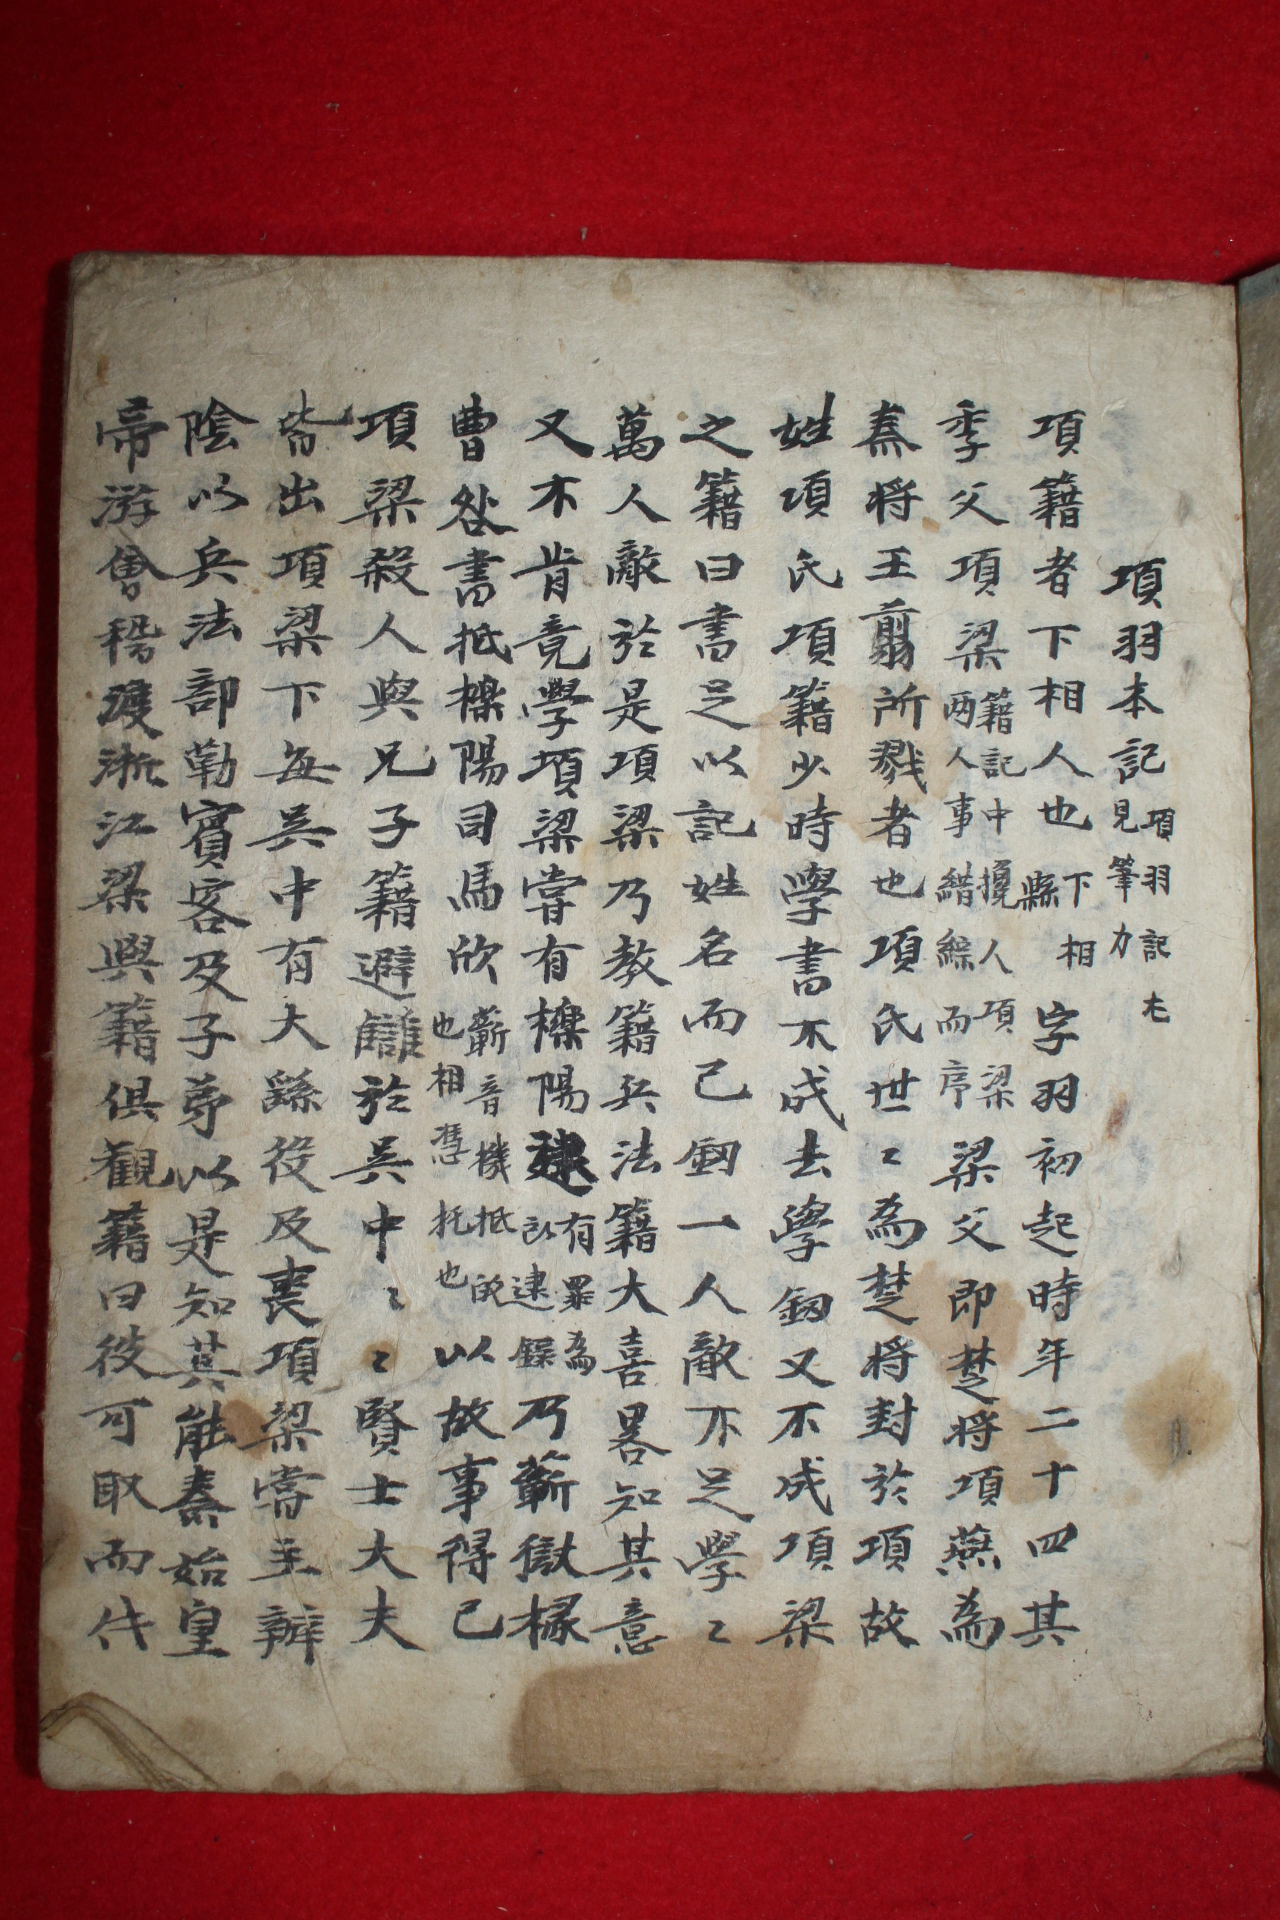 項羽本記 項羽記尤見筆力
項籍者下相人也 下相縣 字羽初起時年二十四其
季父項梁 籍記中攙人項梁両人事錯綜而序 梁父即楚將項燕為
秦将王翦所戮者也項氏世〻為楚将封於項故
姓項氏項籍少時學書不成去學釰又不成項梁
之籍曰書足以記姓名而已釰一人敵不足學〻
萬人敵於是項梁乃教籍兵法籍大喜畧知其意
又不肯竟學項梁甞有櫟陽逮 有罪為以逮録 乃蘄獄掾
曹咎書抵櫟陽司馬欣 蘄音機抵故也相憑托也 以故事得已
項梁殺人與兄子籍避讎於吳中〻〻賢士大夫
皆出項梁下每吳中有大繇役及喪項梁常主辦
陰以兵法部勒賓客及子弟以是知其能秦始皇
帝游會稽渡浙江梁與籍俱觀籍曰彼可取而代